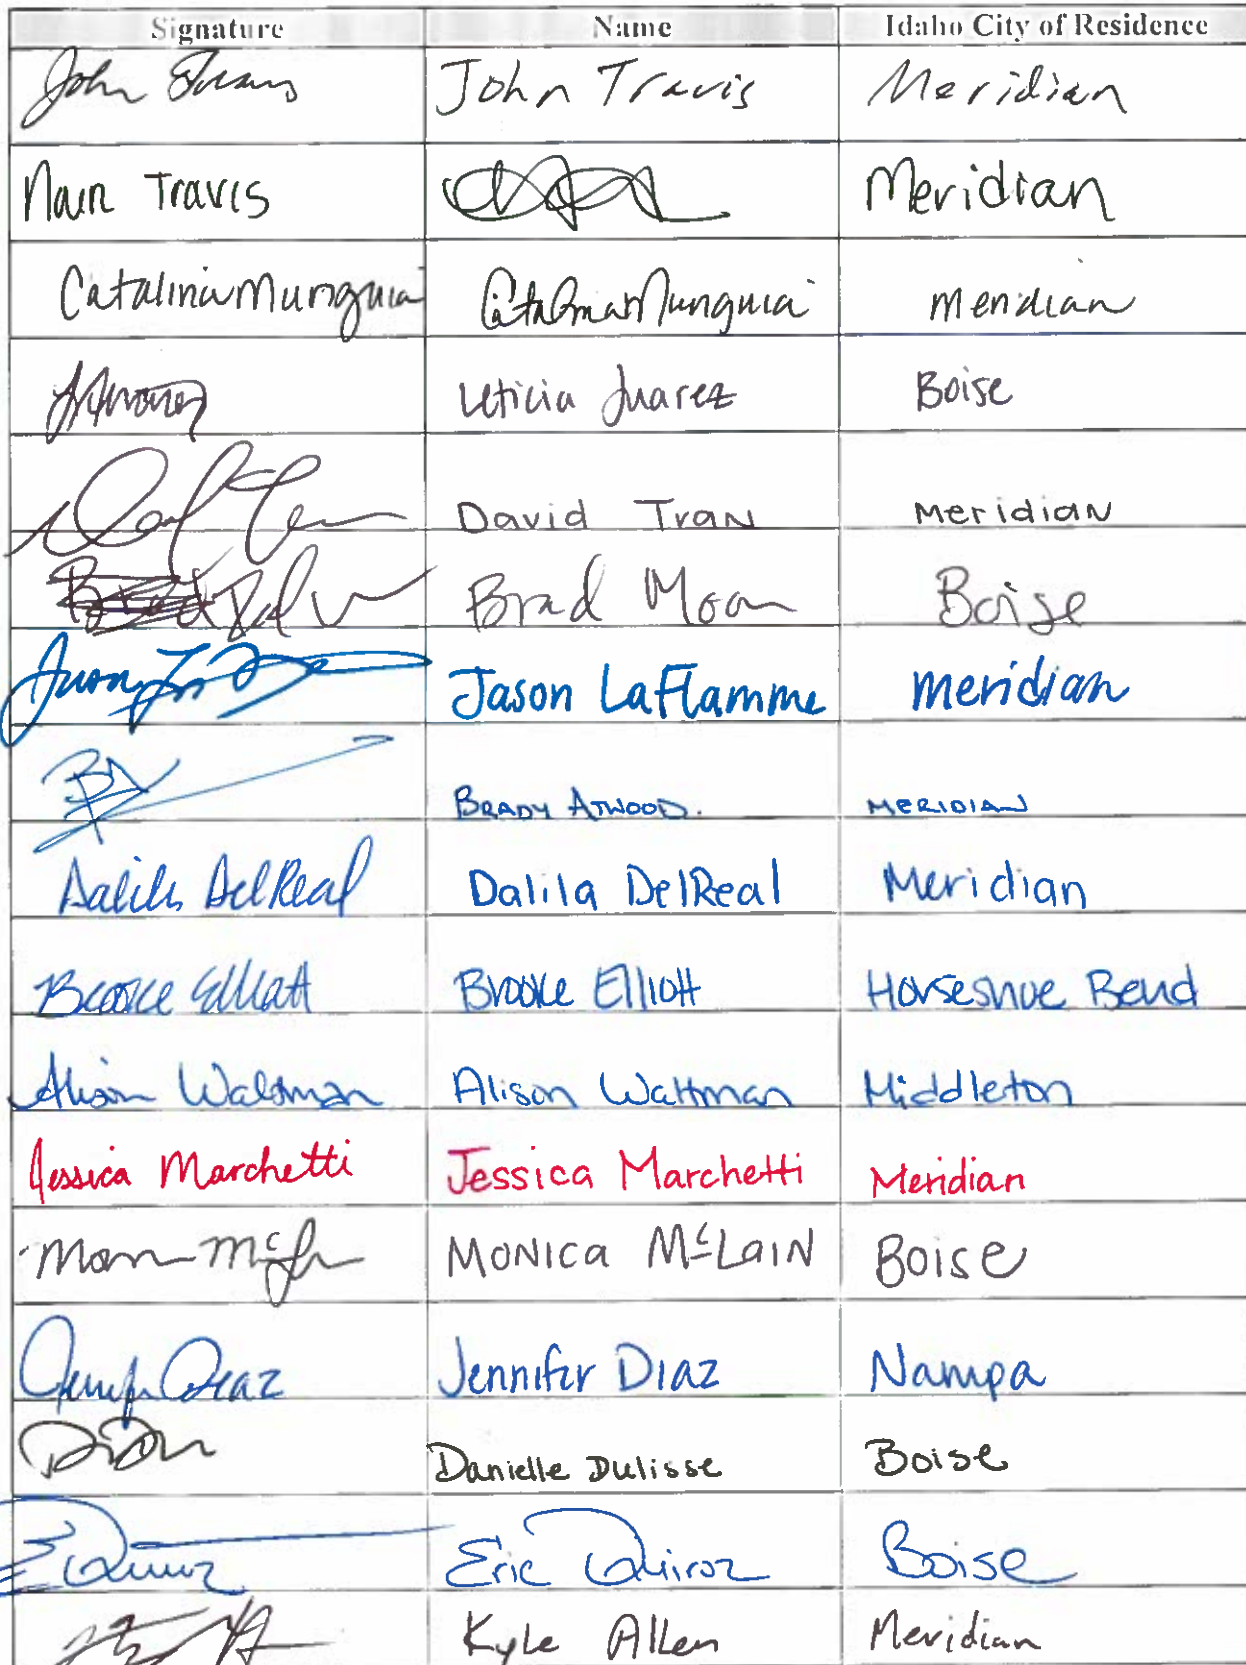 Signature Name Idaho City of Residence
John Travis John Travis Meridian
Travis Meridian
Catalina Munguia Catalina Munguia Meridian
Leticia Juarez Boise
David Tran Meridian
Brad Moon Boise
Jason LaFlamme Meridian
BRADY ATWOOD. MERIDIAN
Dalila DelReal Dalila DelReal Meridian
Brooke Elliott Brooke Elliott Horseshoe Bend
Alison Waltman Alison Waltman Middleton
Jessica Marchetti Jessica Marchetti Meridian
MONICA McLAIN Boise
Jennifer Diaz Nampa
Danielle Dulisse Boise
E Quiroz Eric Quiroz Boise
Kyle Allen Meridian